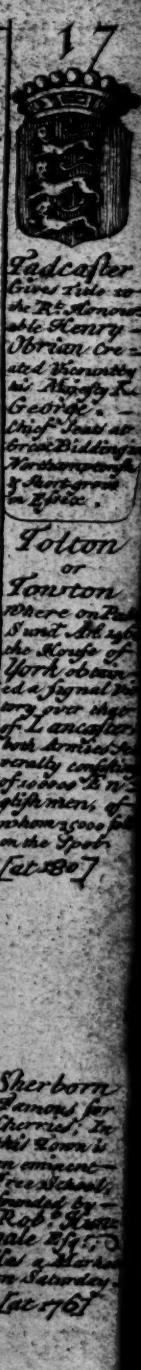 17
Tadcaster
Gives Title to
the Rt. Honour-
able Henry
Obrian Cre=
ated Viscount by
his Majesty K.
George.
Chief Seats at
Great Biddling
Northamptonsh.
& Shortgrove
in Essex.
Tolton
or
Towton
Where on Palm
Sund. An.
the House of
York obtain=
ed a Signal Vic
tory over that
of Lancaster
both Armies se
verally consisting
of 100000 En=
glish men, of
whom 35000 fell
on the Spot.
[at 180]
Sherborn
Famous for
Cherries. In
this Town is
an eminent
Free School,
founded by
Rob. 
gale Esq.
has a Market
on Saturday.
[at 176]